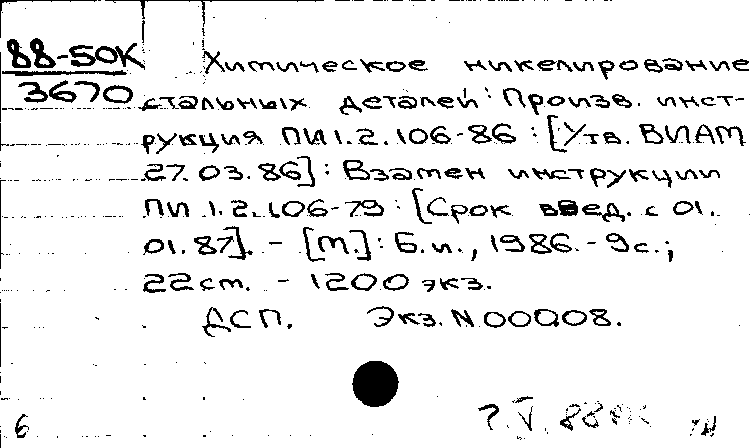 88-50К
3670
Химическое никелирование
стальных деталей: Произв. инст-
рукция ПИ1.2.106-86 : [Утв. ВИАМ
27.03.86] : Взамен инструкции
ПИ 1.2.106-79 : [Срок введ. с 01.
01.87]. - [М.] : Б.и., 1986. - 9с.;
22см. - 1200 экз.
ДСП. Экз. N 00008.
6
V. 88